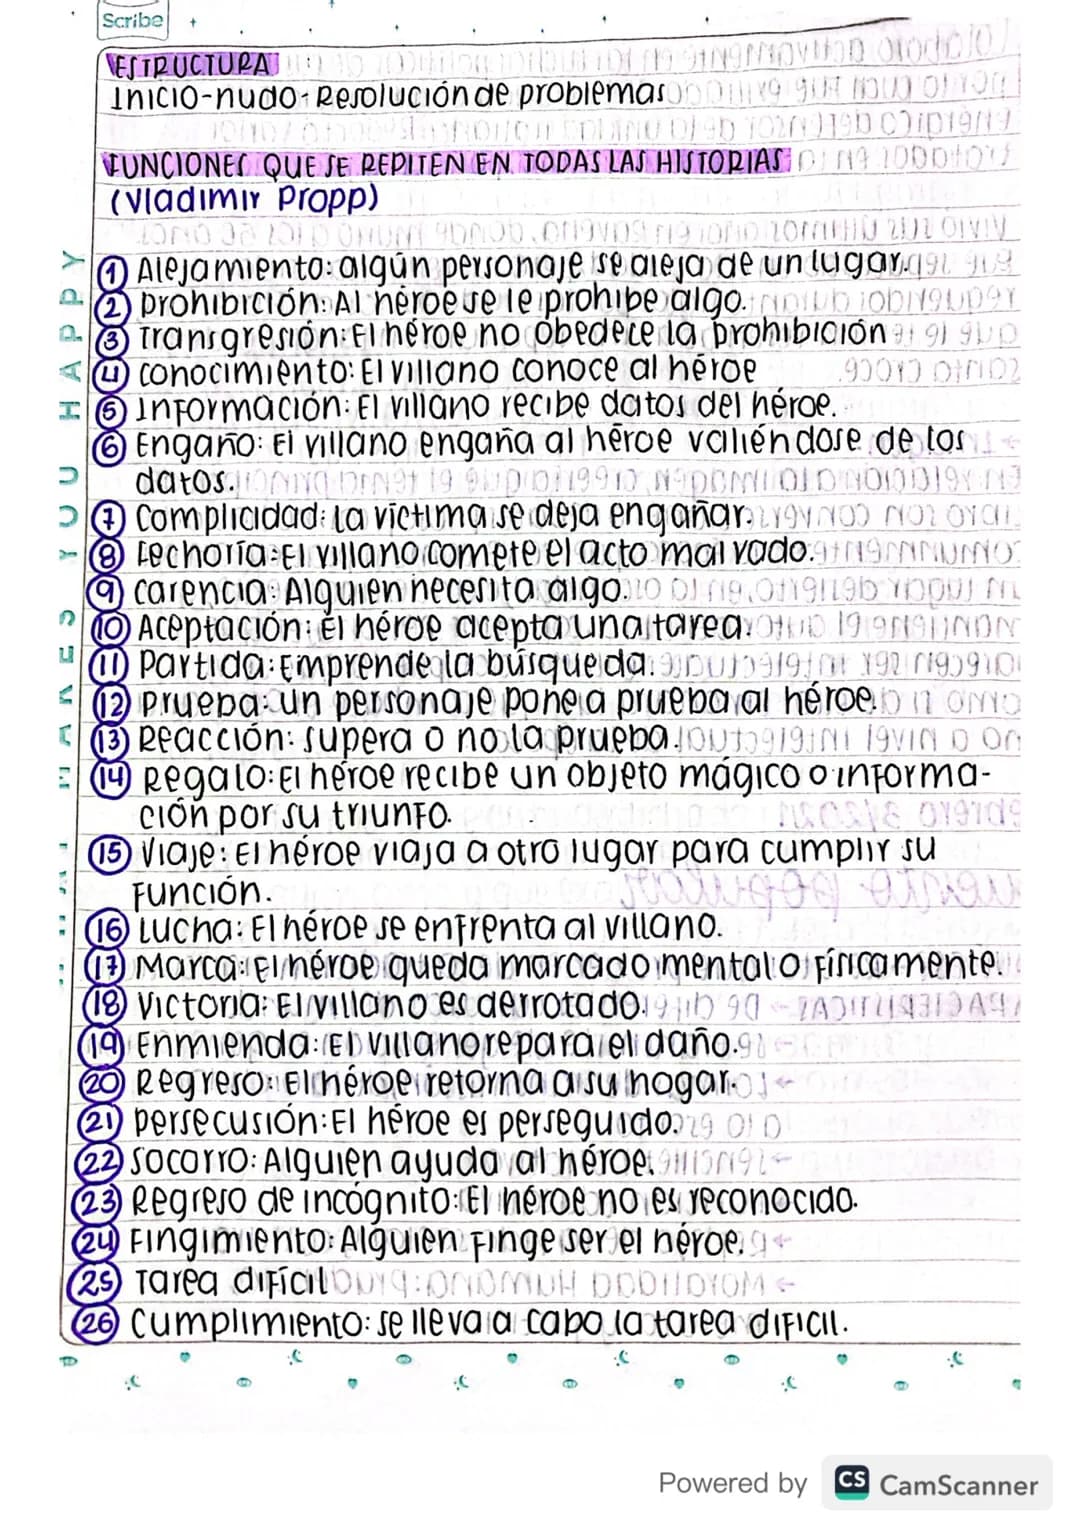 Scribe
ESTRUCTURA
Inicio-nudo-Resolución de problemas
FUNCIONES QUE SE REPITEN EN TODAS LAS HISTORIAS
(Vladimir Propp)
1 Alejamiento: algún personaje se aleja de un lugar.
2 prohibición: Al héroe se le prohibe algo.
3 Transgresión: El héroe no obedece la prohibición
4 conocimiento: El villano conoce al héroe
5 Información: El villano recibe datos del héroe.
6 Engaño: El villano engaña al héroe valiéndose de los
datos.
7 Complicidad: La victima se deja engañar.
8 Fechoría: El villano comete el acto malvado.
9 carencia: Alguien necesita algo.
10 Aceptación: El héroe acepta una tarea.
11 Partida: Emprende la búsqueda.
12 Prueba: un personaje pone a prueba al héroe.
13 Reacción: supera o no la prueba.
14 Regalo: El héroe recibe un objeto mágico o informa-
ción por su triunfo.
15 Viaje: El héroe viaja a otro lugar para cumplir su
Función.
16 Lucha: El héroe se enfrenta al villano.
17 Marca: El héroe queda marcado mental o físicamente.
18 Victoria: El villano es derrotado.
19 Enmienda: El villano repara el daño.
20 Regreso: El héroe retorna a su hogar.
21 persecusión: El héroe es perseguido.
22 Socorro: Alguien ayuda al héroe.
23 Regreso de incógnito: El héroe no es reconocido.
24 Fingimiento: Alguien Finge ser el héroe.
25 Tarea difícil
26 Cumplimiento: se lleva a cabo la tarea dificil.
MAKES YOU HAPPY
Powered by CS CamScanner